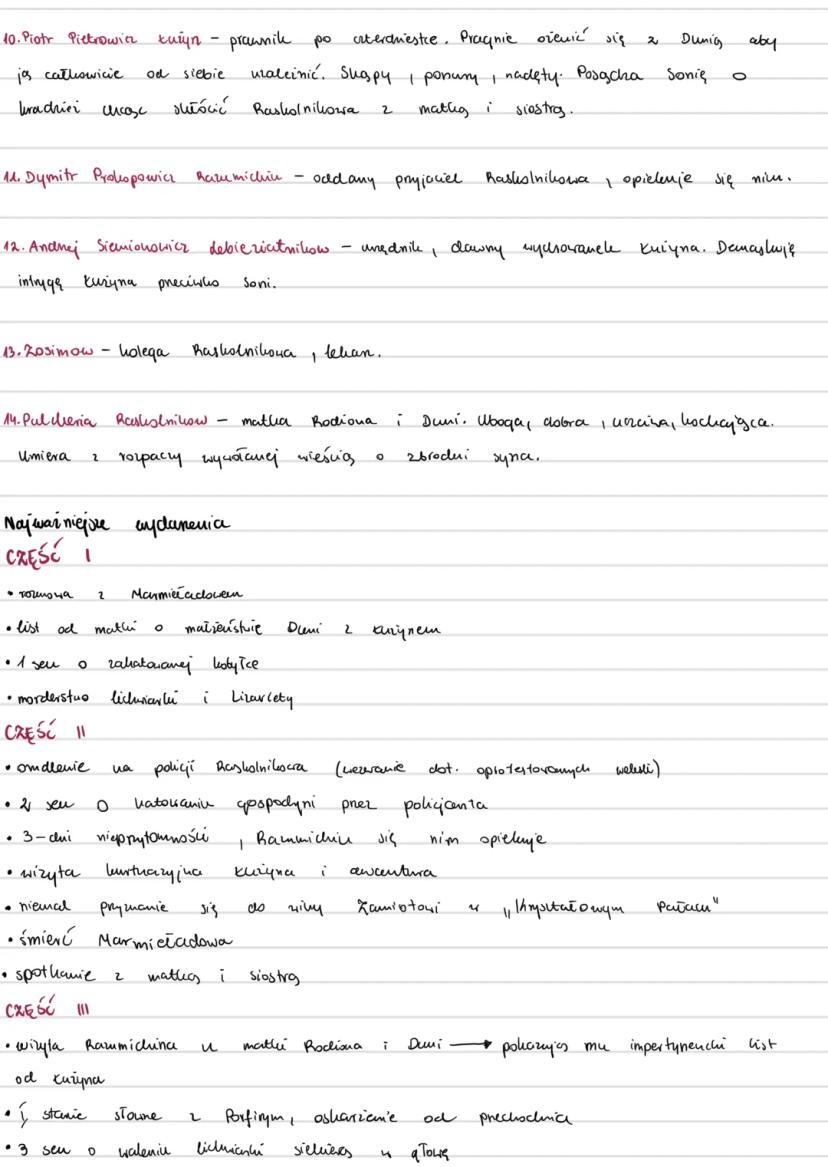 10. Piotr Pietrowicz Łużyn – prawnik po czterdziestce. Pragnie ożenić się z Dunią aby
ją całkowicie od siebie uzależnić. Skąpy, ponury, nadęty. Posądza Sonię o
kradzież chcąc skłócić Raskolnikowa z matką i siostrą.
11. Dymitr Prokopowicz Razumichin – oddany przyjaciel Raskolnikowa, opiekuje się nim.
12. Andrzej Siemionowicz Lebieziatnikow – urzędnik, dawny wychowanek Łużyna. Demaskuję
intrygę Łużyna przeciwko Soni.
13. Zosimow – kolega Raskolnikowa, lekarz.
14. Pulcheria Raskolnikow – matka Rodiona i Duni. Uboga, dobra, uczciwa, kochająca.
Umiera z rozpaczy wywołanej wieścią o zbrodni syna.
Najważniejsze wydarzenia
CZĘŚĆ I
• rozmowa z Marmieładowem
• list od matki o małżeństwie Duni z Łużynem
• 1 sen o zakatowanej kobyłce
• morderstwo lichwiarki i Lizawiety
CZĘŚĆ II
• omdlenie na policji Raskolnikowa (wezwanie dot. oprotestowanych weksli)
• 2 sen o katowaniu gospodyni przez policjanta
• 3-dni nieprzytomności, Razumichin się nim opiekuje
• wizyta kurtuazyjna Łużyna i awantura
• niemal przyznanie się do winy Zamiotowi w "Kryształowym Pałacu"
• śmierć Marmieładowa
• spotkanie z matką i siostrą
CZĘŚĆ III
• wizyta Razumichina u matki Rodiona i Duni ⟶ pokazują mu impertynencki list
od Łużyna
• 1 starcie słowne z Porfirym, oskarżenie od przechodnia
• 3 sen o waleniu lichwiarki siekierą w głowę